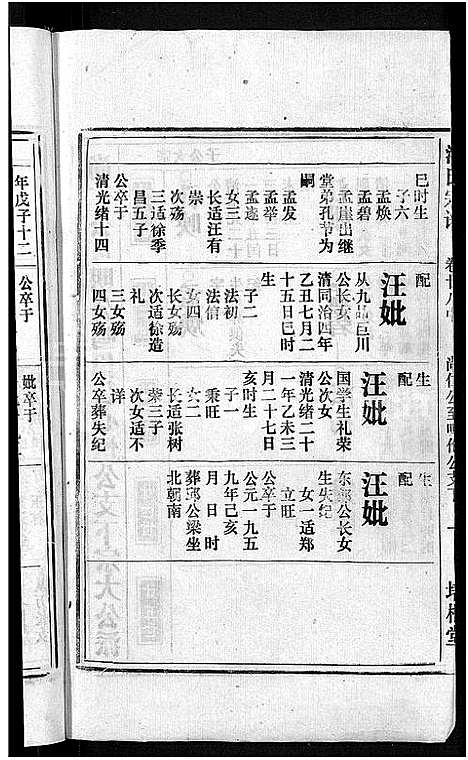 巳时生
子六
孟焕
孟碧
孟崖出继
堂弟孔节为
嗣
孟发
孟遂
女三
长适汪有
崇
次殇
三适徐季
昌五子
公卒于
清光绪十四
配
汪妣
从九品巨川
公长女
清同治四年
乙丑七月二
十五日巳时
生
子二
法初
法信
女四
长女殇
次适徐造
礼
三女殇
四女殇
生
配
汪妣
国学生礼荣
公次女
清光绪二十
一年乙未三
月二十七日
亥时生
子一
秉旺
女二
长适张树
荣三子
次女适不
详
公卒葬失纪
生
配
汪妣
东郎公长女
生失纪
女一适郑
立旺
公卒于
公元一九五
九年己亥
月日时
葬邱公梁坐
北朝南
年戊子十二
公卒于
妣卒于